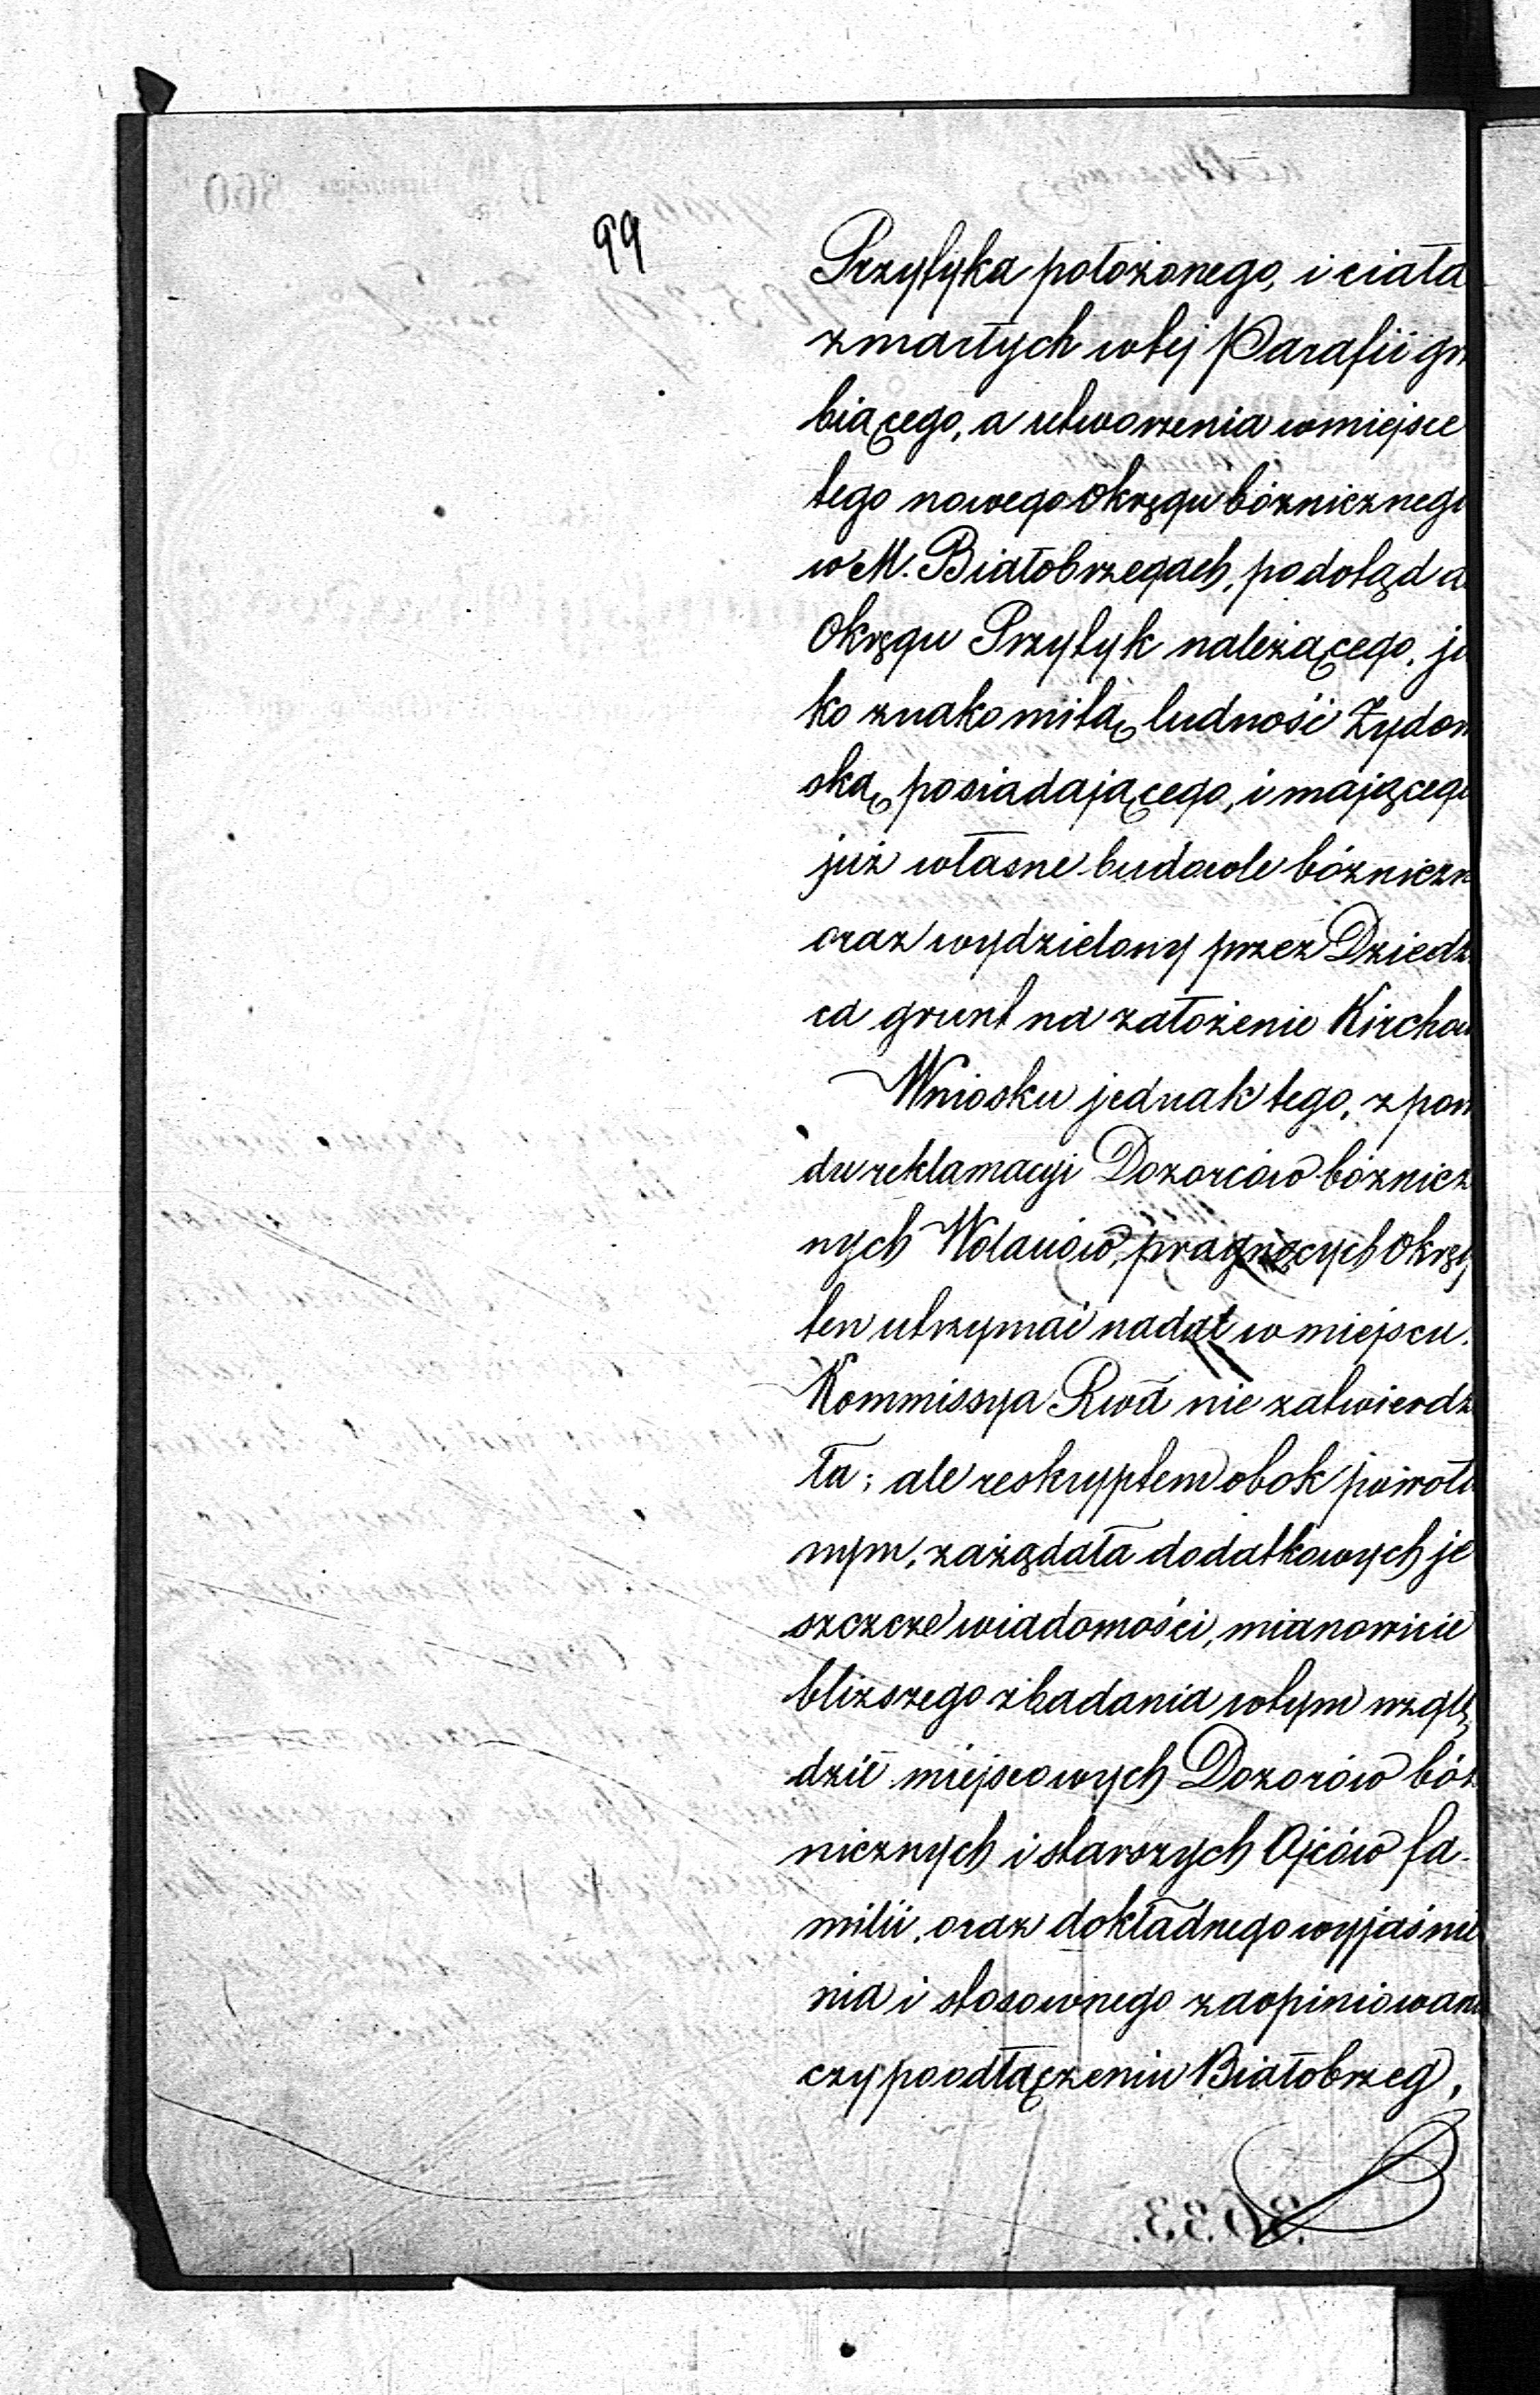 99
Przytyka położonego, i ciała
zmarłych w tej Parafii grz
biącego, a utworzenia w miejsce
tego nowego Okręgu bóżnicznego
w M. Białobrzegach, podotąd d
Okręgu Przytyk należącego, ja
ko znakomitą ludność Żydow
ską posiadającego, i mającego
już własne budowle bóżniczn
oraz wydzielony przez Dziedzi
ca grunt na założenie Kircha
Wniosku jednak tego, z pow
du reklamacyi Dozorców bóżnicz
nych Wolanów, pragnących Okręg
ten utrzymać nadal w miejscu.
Kommissya Rwa nie zatwierdzi
ła; ale reskryptem obok powoła
nym, zażądała dodatkowych je
szcze wiadomości, mianowicie
bliższego zbadania w tym wzglę
dzie miejscowych Dozorów bóż
nicznych i starszych Ojców fa-
milii, oraz dokładnego wyjaśnie
nia i stosownego zaopiniowani
czy po odłączeniu Białobrzeg,